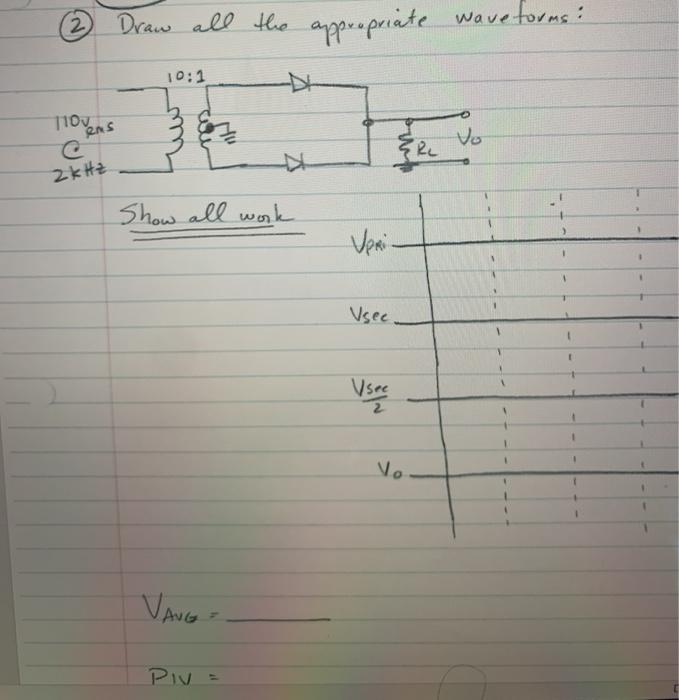 ② Draw all the appropriate waveforms:
10:1
110V RMS
@
2kHz
RL
Vo
Show all work
Vpri
Vsec
Vsec
2
Vo
VAVG =
PIV =